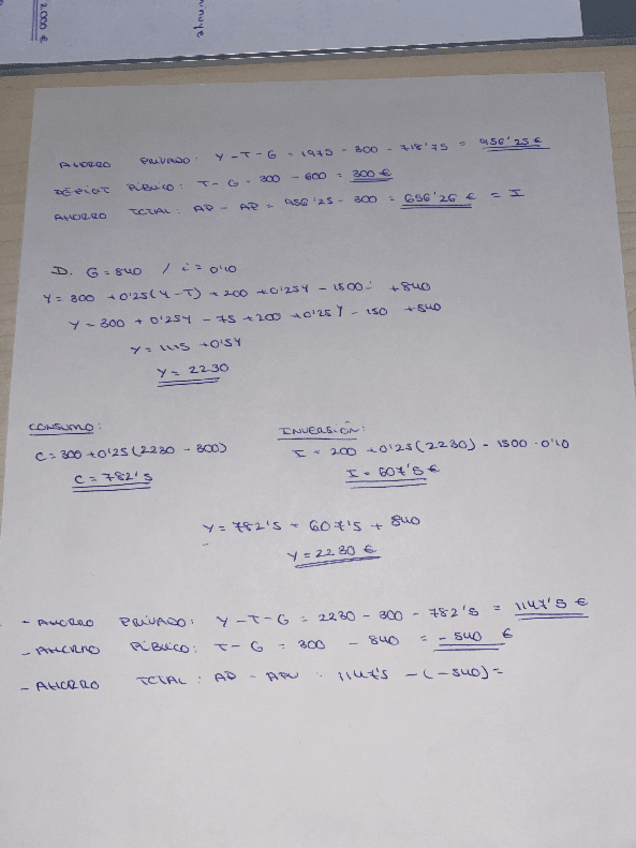 2.000 €
ninuye
AHORRO PRIVADO: Y - T - G = 1975 - 300 - 718'75 = 956'25 €
PÚBLICO: T - G = 300 - 600 = 300 €
AHORRO TOTAL: AP - AP = 956'25 - 300 = 656'26 € = I
D. G = 840 / i = 0'10
Y = 300 + 0'25(Y - T) + 200 + 0'25Y - 1500i + 840
Y = 300 + 0'25Y - 75 + 200 + 0'25Y - 150 + 840
Y = 1115 + 0'5Y
Y = 2230
CONSUMO:
C = 300 + 0'25(2230 - 300)
C = 782'5
INVERSIÓN:
I = 200 + 0'25(2230) - 1500 · 0'10
I = 607'5 €
Y = 782'5 = 607'5 + 840
Y = 2230 €
- AHORRO PRIVADO: Y - T - G = 2230 - 300 - 782'5 = 1147'5 €
- AHORRO PÚBLICO: T - G = 300 - 840 = - 540 €
- AHORRO TOTAL: AP - APU = 1147'5 - (-540) =